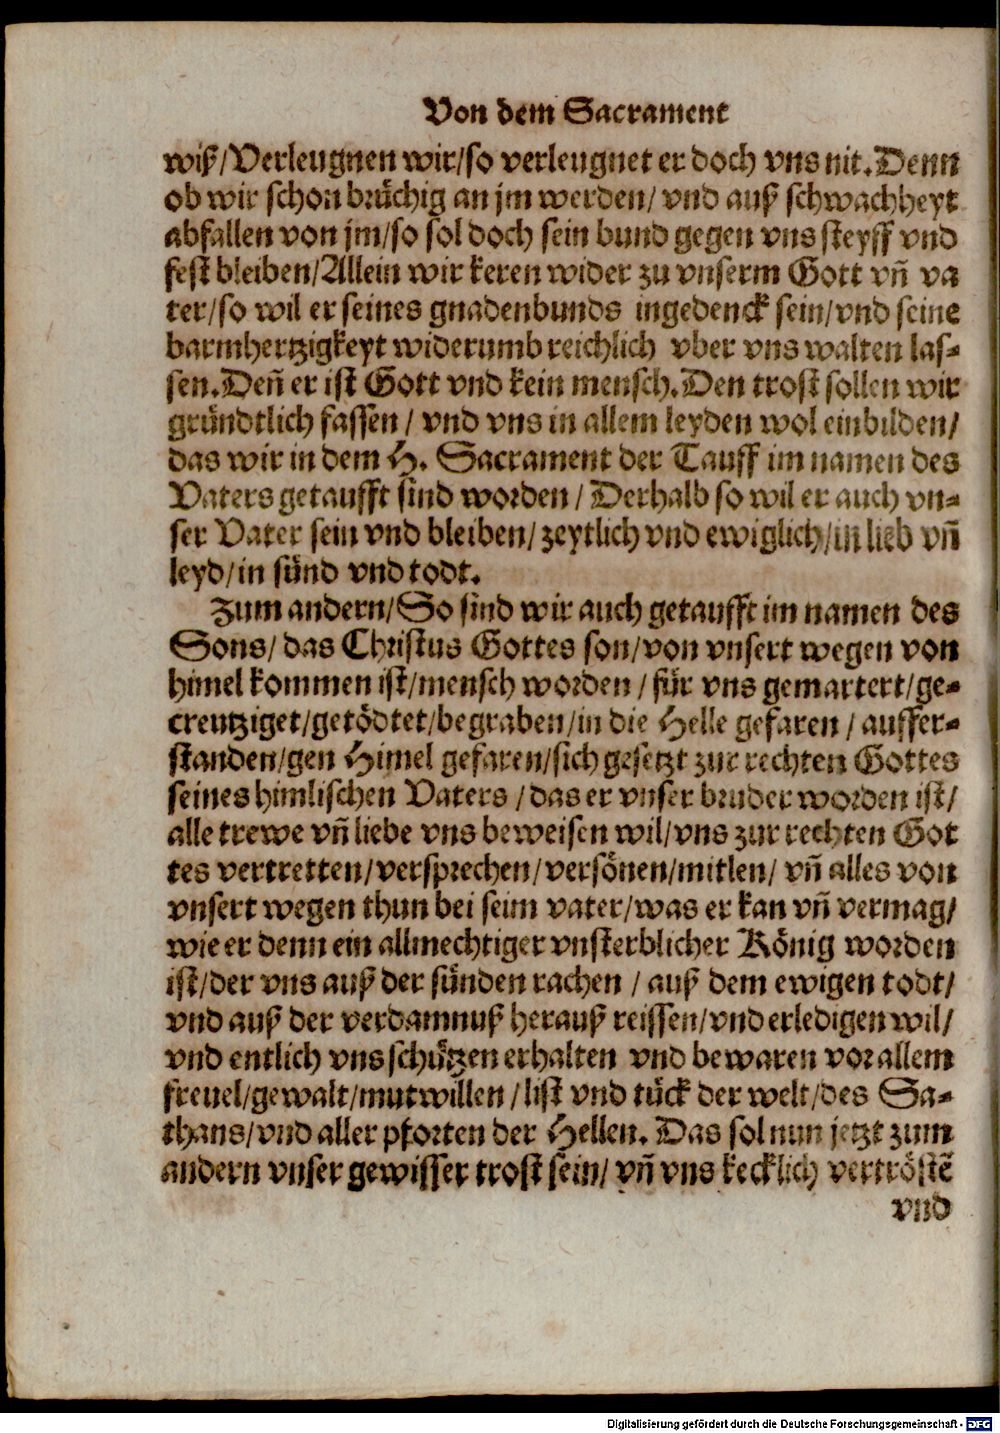 Von dem Sacrament
wiß/Verleugnen wir/so verleugnet er doch vns nit.Denn
ob wir schon brüchig an jm werden/ vnd auß schwachheyt
abfallen von jm/so sol doch sein bund gegen vns steyff vnd
fest bleiben/Allein wir keren wider zu vnserm Gott vñ va
ter/so wil er seines gnadenbunds ingedenck sein/vnd seine
barmhertzigkeyt widerumb reichlich vber vns walten las-
sen.Deñ er ist Gott vnd kein mensch.Den trost sollen wir
gründtlich fassen / vnd vns in allem leyden wol einbilden/
das wir in dem H. Sacrament der Tauff im namen des
Vaters getaufft sind worden / Derhalb so wil er auch vn-
ser Vater sein vnd bleiben/ zeytlich vnd ewiglich/in lieb vñ
leyd/in sünd vnd todt.
Zum andern/So sind wir auch getaufft im namen des
Sons/ das Christus Gottes son/von vnsert wegen von
himel kommen ist/mensch worden / für vns gemartert/ge-
creutziget/getödtet/begraben/in die Helle gefaren / auffer-
standen/gen Himel gefaren/sich gesetzt zur rechten Gottes
seines himlischen Vaters /das er vnser bruder worden ist/
alle trewe vñ liebe vns beweisen wil/vns zur rechten Got
tes vertretten/versprechen/versönen/mitlen/ vñ alles von
vnsert wegen thun bei seim vater/was er kan vñ vermag/
wie er denn ein allmechtiger vnsterblicher König worden
ist/der vns auß der sünden rachen / auß dem ewigen todt/
vnd auß der verdamnuß herauß reissen/vnd erledigen wil/
vnd entlich vns schützen erhalten vnd bewaren vor allem
freuel/gewalt/mutwillen /list vnd tück der welt/des Sa-
thans/vnd aller pforten der Hellen. Das sol nun jetzt zum
andern vnser gewisser trost sein/ vñ vns kecklich vertröstẽ
vnd
Digitalisierung gefördert durch die Deutsche Forschungsgemeinschaft - DFG